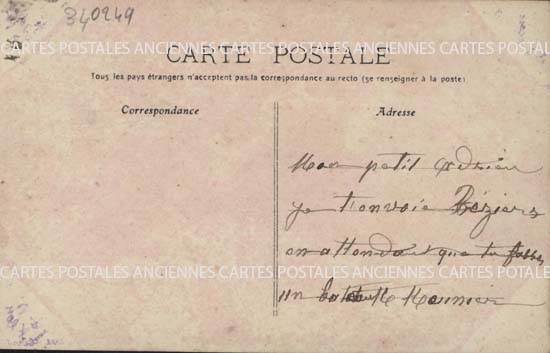 340249
CARTES POSTALES ANCIENNES CARTES POSTALES ANCIENNES CARTES POSTALES ANCIENNES
CARTE POSTALE
Tous les pays étrangers n'acceptent pas la correspondance au recto (se renseigner à la poste)
Correspondance
Adresse
Mon petit Adrien
je t'envoie Béziers
en attendant que tu
CARTES POSTALES ANCIENNES CARTES POSTALES ANCIENNES CARTES POSTALES ANCIENNES
un Meunier